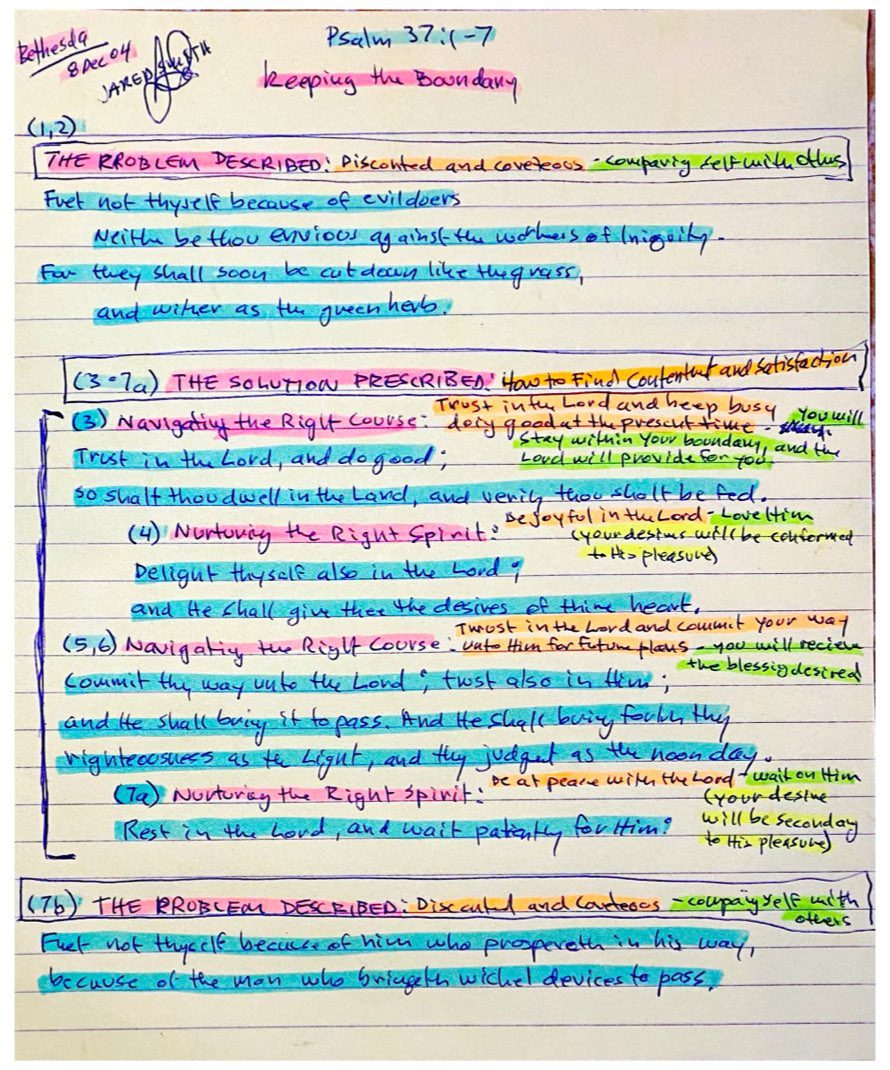 Bethesda
8 Dec 04
JARED SMITH
Psalm 37:1-7
Keeping the Boundary
(1,2)
THE PROBLEM DESCRIBED: Disconted and coveteous - comparing self with others
Fret not thyself because of evildoers
Neither be thou envious against the workers of Iniquity.
For they shall soon be cut down like the grass,
and wither as the green herb.
(3-7a) THE SOLUTION PRESCRIBED: How to Find Contentment and Satisfaction
(3) Navigating the Right Course: Trust in the Lord and keep busy
doing good at the present time - You will
stay within your boundary, and the
Lord will provide for you.
Trust in the Lord, and do good;
so shalt thou dwell in the Land, and verily thou shalt be fed.
(4) Nurturing the Right Spirit: Be joyful in the Lord - Love Him
(your desires will be conformed
to His pleasure)
Delight thyself also in the Lord;
and He shall give thee the desires of thine heart.
(5,6) Navigating the Right Course: Trust in the Lord and commit your way
unto Him for future plans - you will recieve
the blessing desired
Commit thy way unto the Lord; trust also in Him;
and He shall bring it to pass. And He shall bring forth thy
righteousness as the Light, and thy judgment as the noon day.
(7a) Nurturing the Right Spirit: Be at peace with the Lord - wait on Him
(your desire
will be seconday
to His pleasure)
Rest in the Lord, and wait patiently for Him:
(7b) THE PROBLEM DESCRIBED: Disconted and Coveteous - compaing self with
others
Fret not thyself because of him who prospereth in his way,
because of the man who bringeth wicked devices to pass.